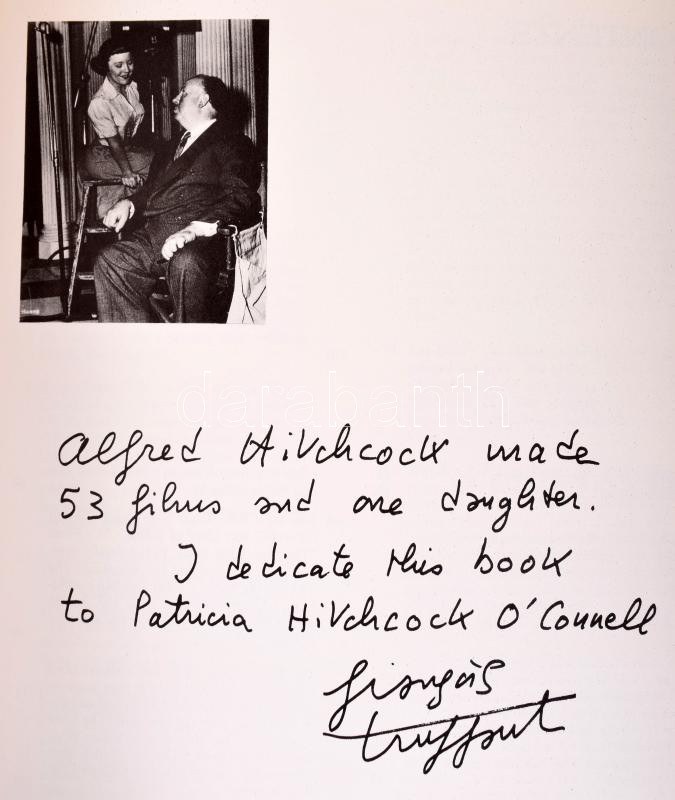 darabanth
Alfred Hitchcock made
53 films and one daughter.
I dedicate this book
to Patricia Hitchcock O'Connell
françois
truffaut